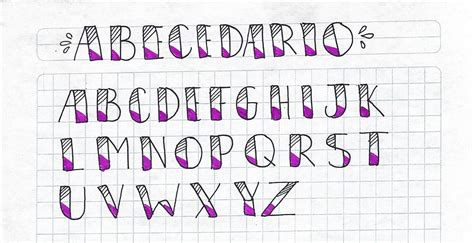 ABECEDARIO
ABCDEFGHIJK
LMNOPQRST
UVWXYZ